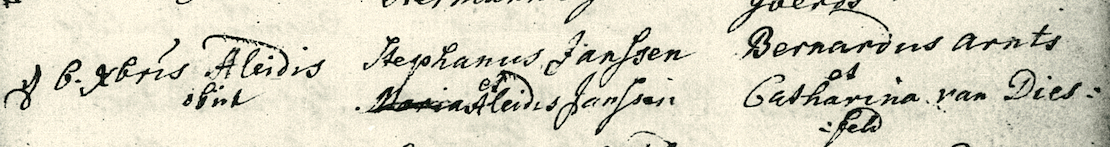 6. Xbris Aleidis Stephanus Janssen Bernardus Arnts
obiit et et
Maria Aleidis Janssen Catharina van Dies-
-feld